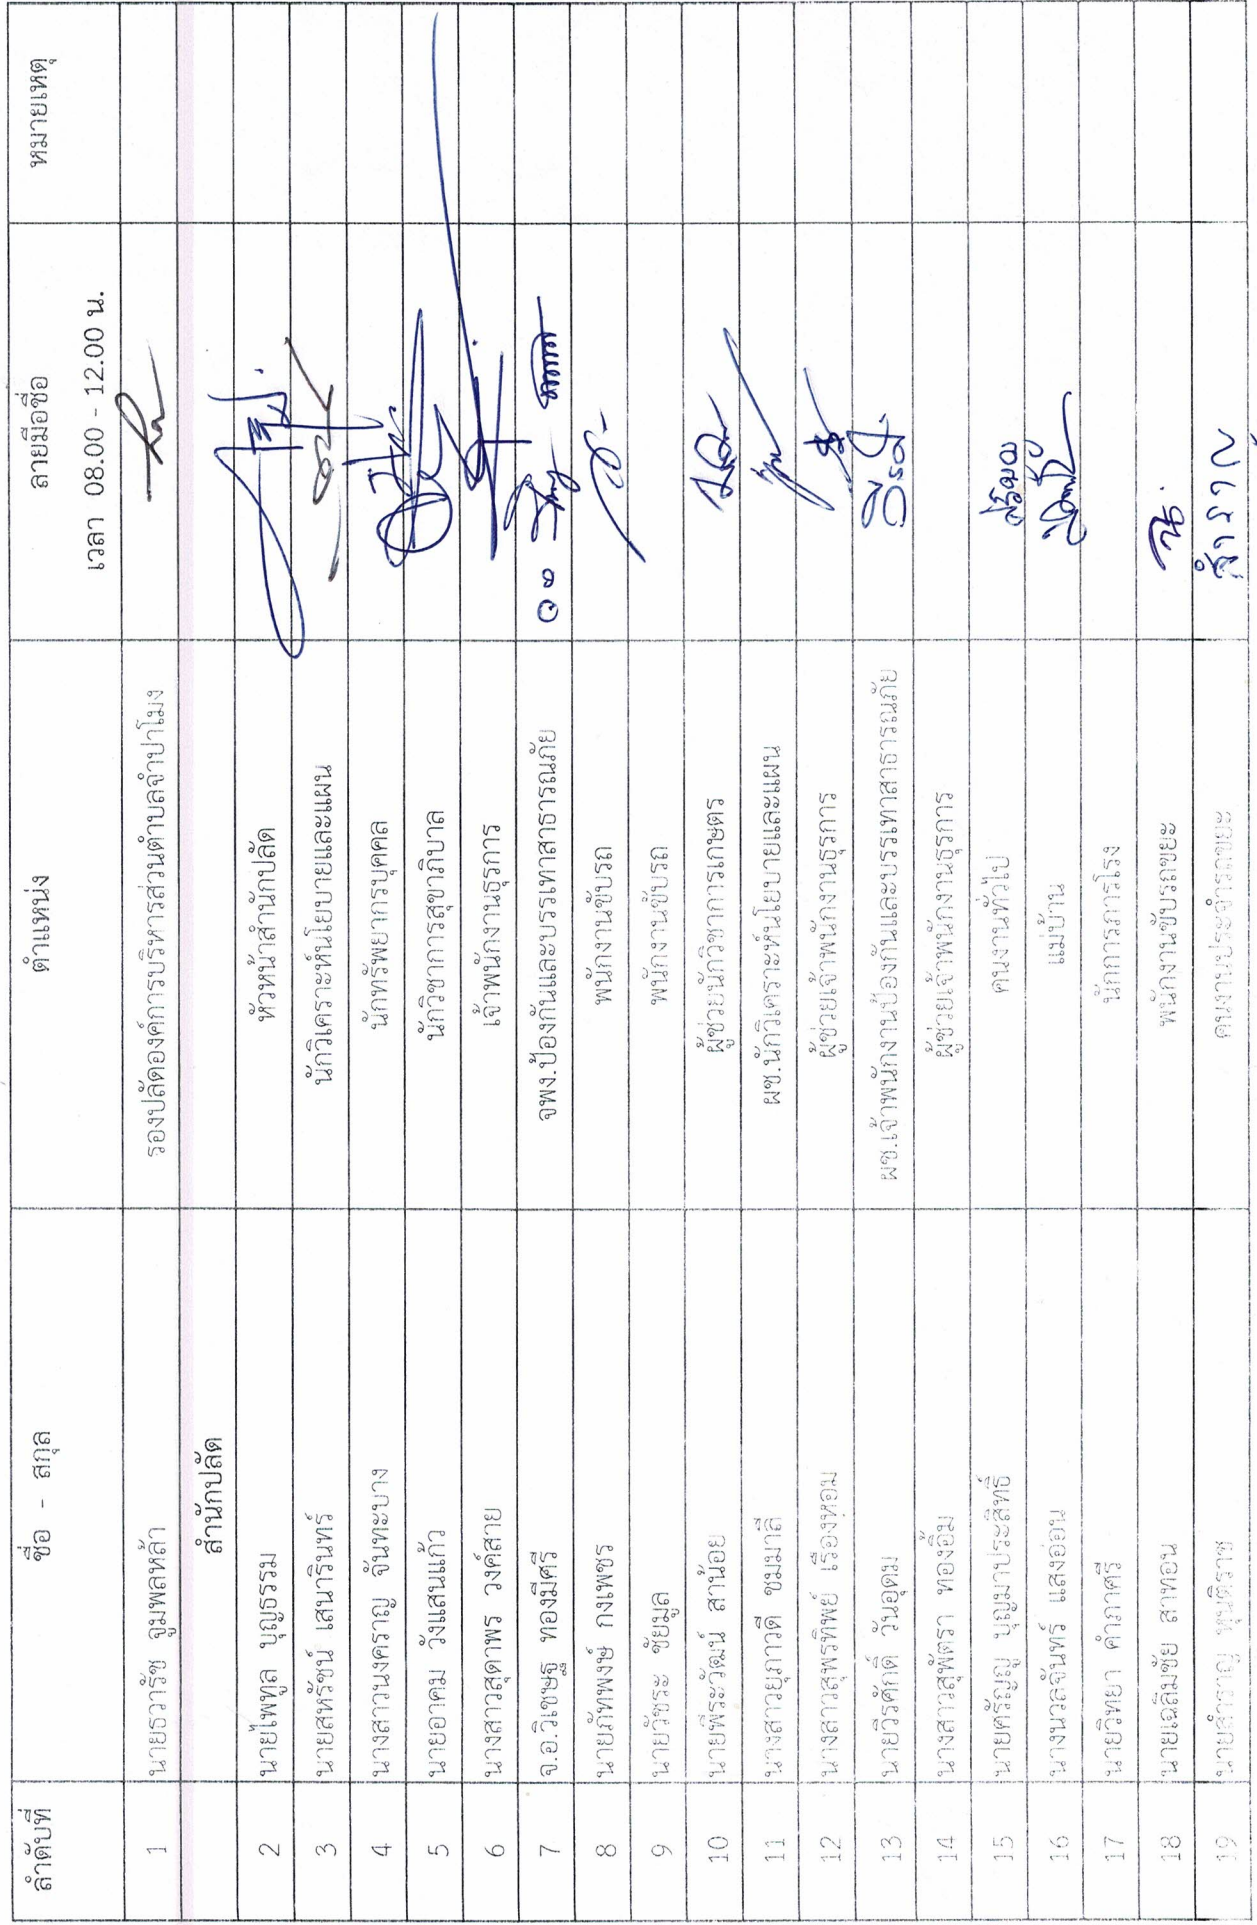 ลำดับที่ ชื่อ - สกุล ตำแหน่ง ลายมือชื่อ หมายเหตุ
เวลา 08.00 - 12.00 น.
1 นายธวารัช จูมพลหล้า รองปลัดองค์การบริหารส่วนตำบลจำปาโมง
สำนักปลัด
2 นายไพฑูล บุญธรรม หัวหน้าสำนักปลัด
3 นายสหรัชน์ เสนารินทร์ นักวิเคราะห์นโยบายและแผน
4 นางสาวนงคราญ จันทะบาง นักทรัพยากรบุคคล
5 นายอาคม วังแสนแก้ว นักวิชาการสุขาภิบาล
6 นางสาวสุดาพร วงค์สาย เจ้าพนักงานธุรการ
7 จ.อ.วิเชษฐ ทองมีศรี จพง.ป้องกันและบรรเทาสาธารณภัย
8 นายภัทพงษ์ กงเพชร พนักงานขับรถ
9 นายวัชระ ชัยมูล พนักงานขับรถ
10 นายพีระวัฒน์ สาน้อย ผู้ช่วยนักวิชาการเกษตร
11 นางสาวยุภาวดี ชมมาลี ผช.นักวิเคราะห์นโยบายและแผน
12 นางสาวสุพรทิพย์ เรืองหอม ผู้ช่วยเจ้าพนักงานธุรการ
13 นายวีรศักดิ์ วันอุดม ผช.เจ้าพนักงานป้องกันและบรรเทาสาธารณภัย
14 นางสาวสุพัตรา ทองอิ่ม ผู้ช่วยเจ้าพนักงานธุรการ
15 นายศรัญญู บุญมาประสิทธิ์ คนงานทั่วไป
16 นางนวลจันทร์ แสงอ่อน แม่บ้าน
17 นายวิทยา คำภาศรี นักการภารโรง
18 นายเฉลิมชัย สาทอน พนักงานขับรถขยะ
19 นายสำราญ ขุนติราช คนงานประจำรถขยะ สำราญ